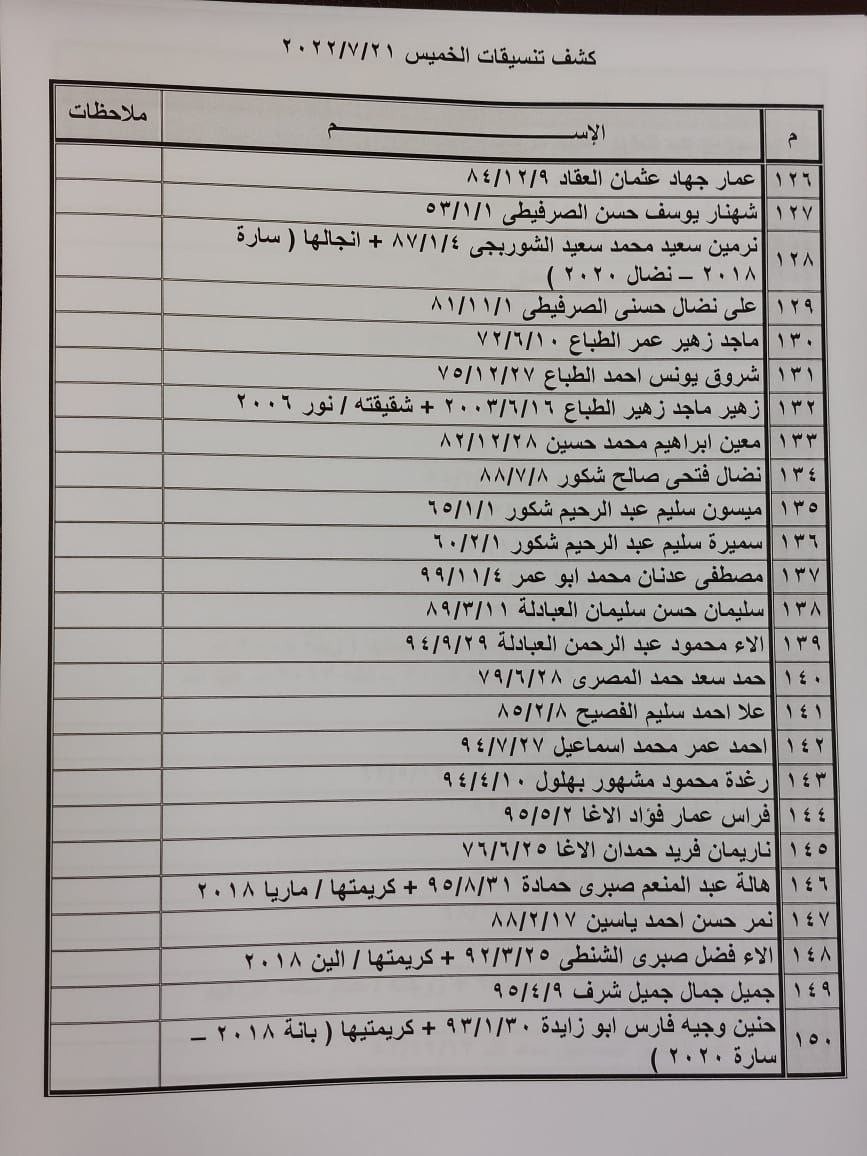 كشف تنسيقات الخميس ٢٠٢٢/٧/٢١
م الإســــــــــــــم ملاحظات
١٢٦ عمار جهاد عثمان العقاد ٨٤/١٢/٩
١٢٧ شهنار يوسف حسن الصرفيطى ٥٣/١/١
١٢٨ نرمين سعيد محمد سعيد الشوربجى ٨٧/١/٤ + انجالها ( سارة
٢٠١٨ – نضال ٢٠٢٠ )
١٢٩ على نضال حسنى الصرفيطى ٨١/١١/١
١٣٠ ماجد زهير عمر الطباع ٧٢/٦/١٠
١٣١ شروق يونس احمد الطباع ٧٥/١٢/٢٧
١٣٢ زهير ماجد زهير الطباع ٢٠٠٣/٦/١٦ + شقيقته / نور ٢٠٠٦
١٣٣ معين ابراهيم محمد حسين ٨٢/١٢/٢٨
١٣٤ نضال فتحى صالح شكور ٨٨/٧/٨
١٣٥ ميسون سليم عبد الرحيم شكور ٦٥/١/١
١٣٦ سميرة سليم عبد الرحيم شكور ٦٠/٢/١
١٣٧ مصطفى عدنان محمد ابو عمر ٩٩/١١/٤
١٣٨ سليمان حسن سليمان العبادلة ٨٩/٣/١١
١٣٩ الاء محمود عبد الرحمن العبادلة ٩٤/٩/٢٩
١٤٠ حمد سعد حمد المصرى ٧٩/٦/٢٨
١٤١ علا احمد سليم الفصيح ٨٥/٢/٨
١٤٢ احمد عمر محمد اسماعيل ٩٤/٧/٢٧
١٤٣ رغدة محمود مشهور بهلول ٩٤/٤/١٠
١٤٤ فراس عمار فؤاد الاغا ٩٥/٥/٢
١٤٥ ناريمان فريد حمدان الاغا ٧٦/٦/٢٥
١٤٦ هالة عبد المنعم صبرى حمادة ٩٥/٨/٣١ + كريمتها / ماريا ٢٠١٨
١٤٧ نمر حسن احمد ياسين ٨٨/٢/١٧
١٤٨ الاء فضل صبرى الشنطى ٩٢/٣/٢٥ + كريمتها / الين ٢٠١٨
١٤٩ جميل جمال جميل شرف ٩٥/٤/٩
١٥٠ حنين وجيه فارس ابو زايدة ٩٣/١/٣٠ + كريمتيها ( بانة ٢٠١٨ –
سارة ٢٠٢٠ )